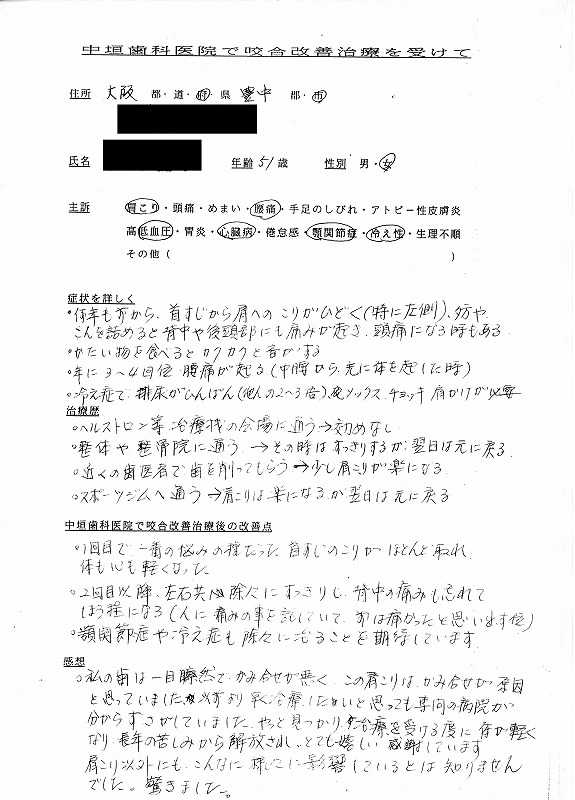 中垣歯科医院で咬合改善治療を受けて
住所 大阪 都・道・府・県 豊中 郡・市
氏名 年齢 51歳 性別 男・女
主訴 肩こり・頭痛・めまい・腰痛・手足のしびれ・アトピー性皮膚炎
高低血圧・胃炎・心臓病・倦怠感・顎関節症・冷え性・生理不順
その他( )
症状を詳しく
・何年も前から、首すじから肩へのこりがひどく(特に左側)、
こんを詰めると背中や後頭部にも痛みが起き、頭痛になる時もある。
・かたい物を食べるとカクカクと音がする
・年に3〜4回位 腰痛が起る(中腰から、元に体を起した時)
・冷え症で、排尿がひんぱん(他人の2〜3倍)夜ソックス、チョッキ 肩かけが必要
治療歴
・ヘルストロン等、治療機の会場に通う→効めなし
・整体や整骨院に通う。→その時はすっきりするが翌日は元に戻る
・近くの歯医者で歯を削ってもらう→少し肩こりが楽になる
・スポーツジムへ通う→肩こりは楽になるが翌日は元に戻る
中垣歯科医院で咬合改善治療後の改善点
・1回目で一番の悩みの種だった首すじのこりがほとんど取れ
体も心も軽くなった
・2回目以降、左右共、除々にすっきりし、背中の痛みも忘れて
しまう程になる(人に痛みの事を話していて、前は痛かったと思い出す位)
・顎関節症や冷え症も除々に治ることを期待しています
感想
・私の歯は一目瞭然で、かみ合せが悪く、この肩こりは、かみ合せが原因
と思っていました。以前より 治療したいと思っても専門の病院が
分からずさがしていました。やっと見つかり、治療を受ける度に 体が軽く
なり、長年の苦しみから解放され、とても嬉しい 感謝しています
肩こり以外にも、こんなに 体に影響しているとは知りません
でした。驚きました。